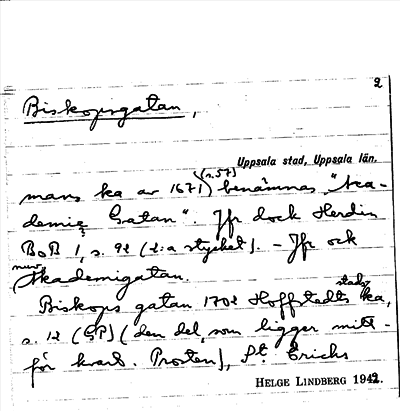 2
Biskopsgatan,
Uppsala stad, Uppsala län.
mans ka av 1671 (s.57) benämnas "Aka-
demie Gatan". Jfr dock Herdin
BoB 1, s. 92 (2:a stycket). - Jfr ock
nuv. Akademigatan.
Biskops gatan 1702 Hoffstedts stads ka,
s. 12 (GP) (den del, som ligger mitt-
för kvart. Prosten), St. Erichs
HELGE LINDBERG 1942.